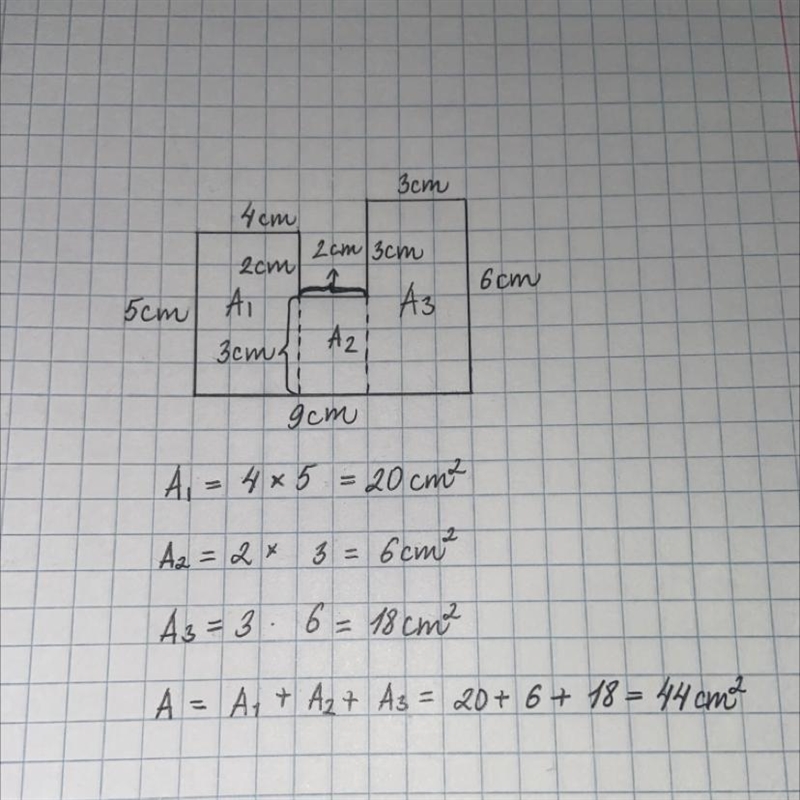 3cm
4cm
2cm 3cm
2cm
6cm
5cm A₁ A₃
3cm A₂
9cm
A₁ = 4 × 5 = 20cm²
A₂ = 2 × 3 = 6cm²
A₃ = 3 · 6 = 18cm²
A = A₁ + A₂ + A₃ = 20 + 6 + 18 = 44cm²